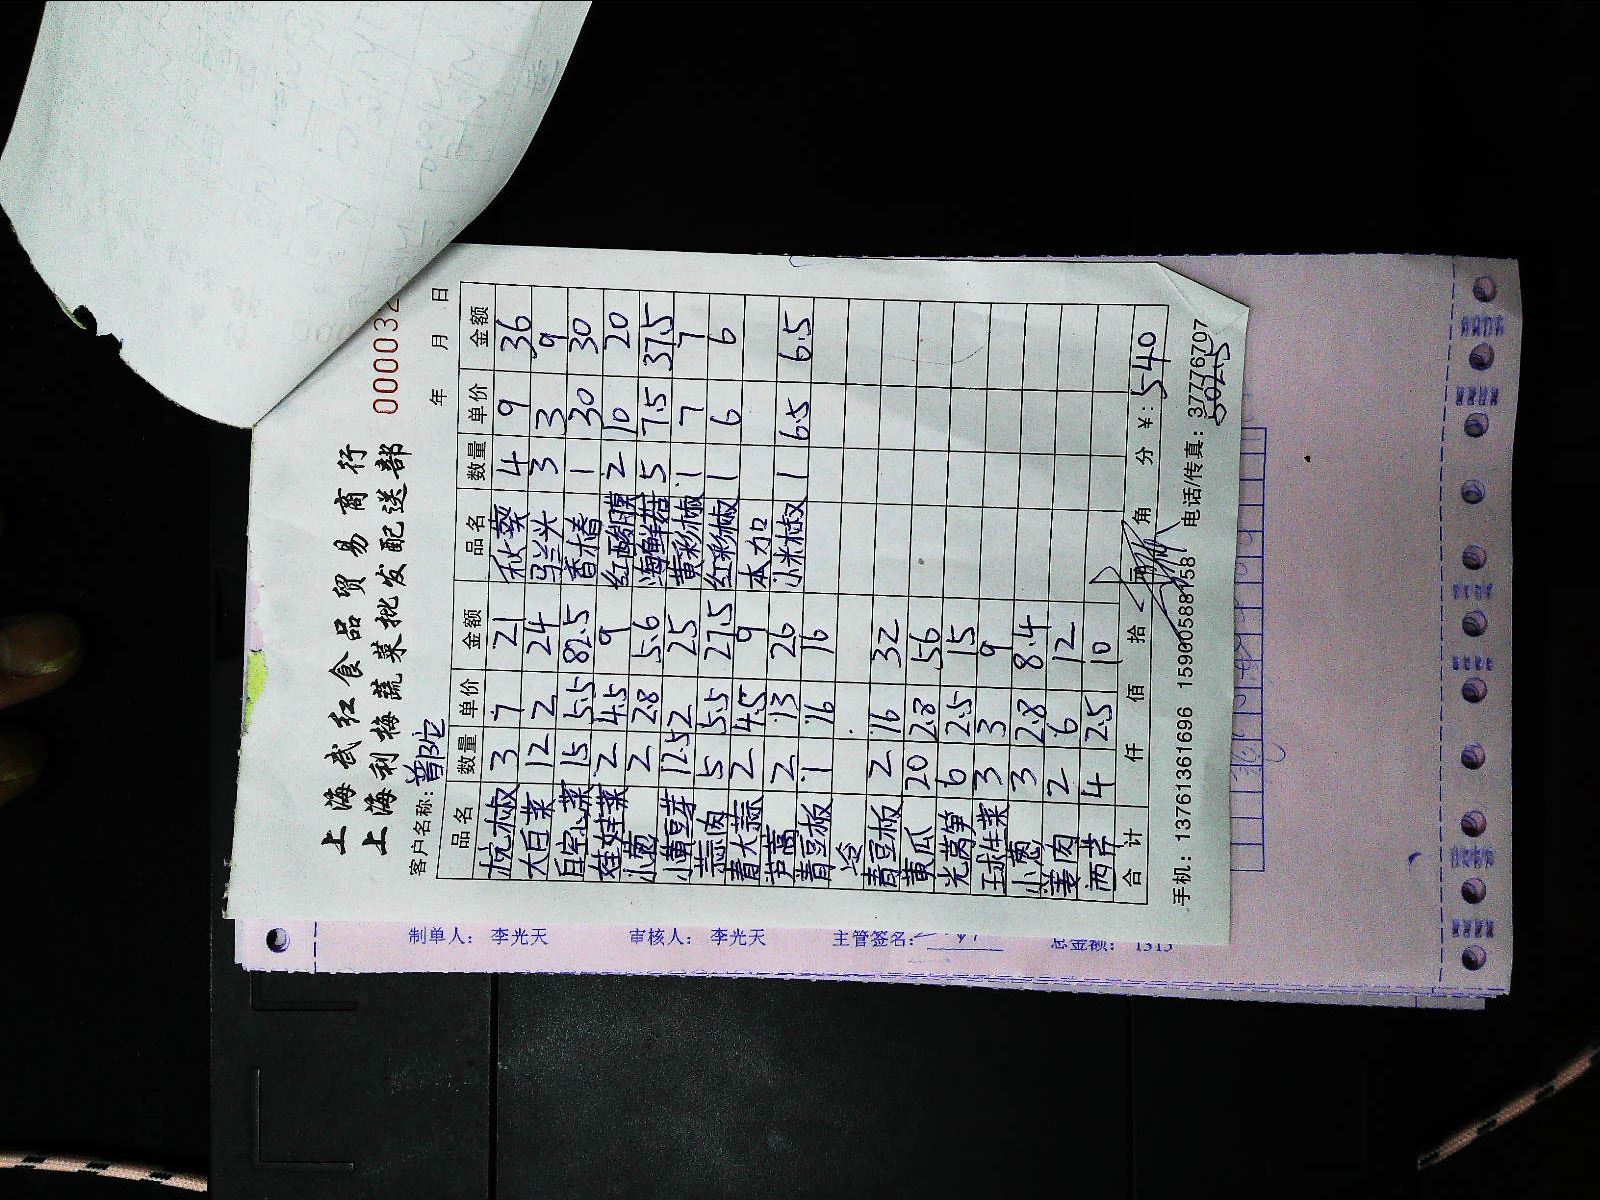 上海武红食品贸易商行
上海利梅蔬菜批发配送部
0000032
客户名称：普陀 年 月 日
品名 数量 单价 金额 品名 数量 单价 金额
杭椒 3 7 21 秋葵 4 9 36
大白菜 12 2 24 马兰头 3 3 9
百字小菜 15 5.5 82.5 香椿 1 30 30
娃娃菜 2 4.5 9 红醋膜 2 10 20
小葱 2 2.8 5.6 海鲜菇 5 7.5 37.5
小黄豆芽 12.5 2 25 黄彩椒 1 7 7
蒜肉 5 5.5 27.5 红彩椒 1 6 6
青大蒜 2 4.5 9 本加
芦蒿 2 13 26 小米椒 1 6.5 6.5
青豆板 1 16 16
青豆板 2 16 32
黄瓜 20 2.8 56
光莴笋 6 2.5 15
王球生菜 3 3 9
小葱 3 2.8 8.4
姜肉 2 6 12
西芹 4 2.5 10
合计 仟 佰 拾 元 角 分 ¥：540
手机：13761361696 15900588758 电话/传真：37776707
502.5
制单人： 李光天 审核人： 李光天 主管签名： 总金额： 1313